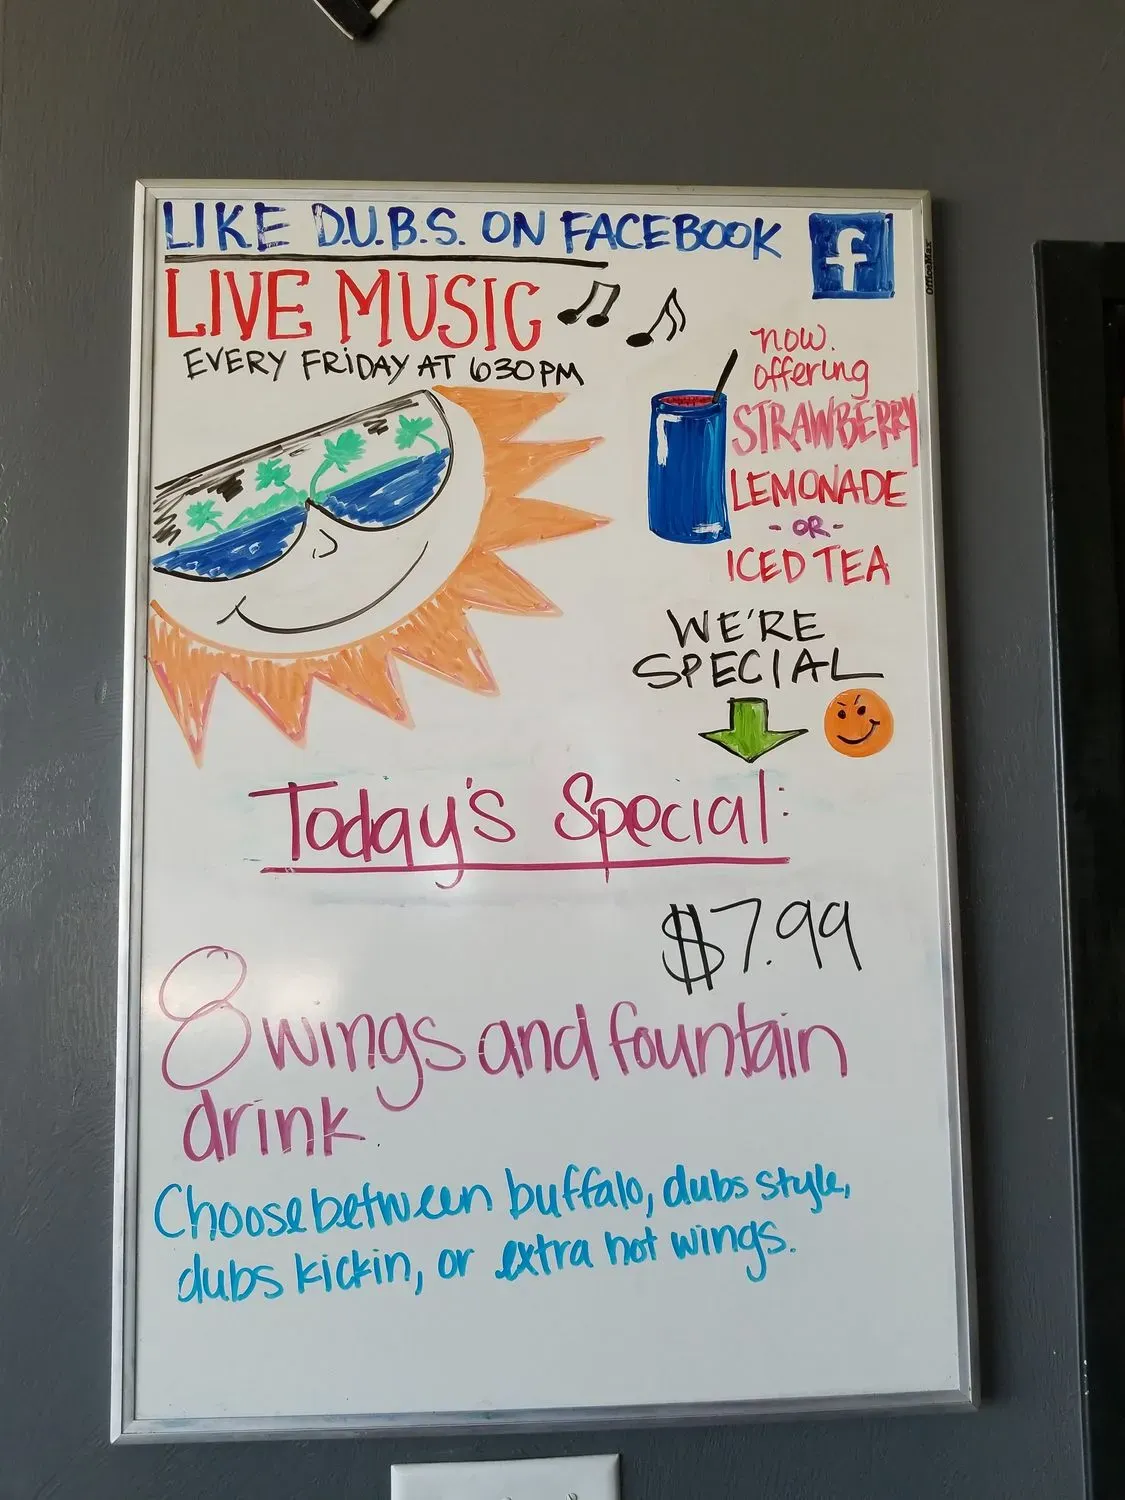 LIKE D.U.B.S. ON FACEBOOK
f
LIVE MUSIC
EVERY FRIDAY AT 630PM
now.
offering
STRAWBERRY
LEMONADE
-OR-
ICED TEA
WE'RE
SPECIAL
Today's Special:
$7.99
8 wings and fountain
drink.
Choose between buffalo, dubs style,
dubs kickin, or extra hot wings.
OfficeMax